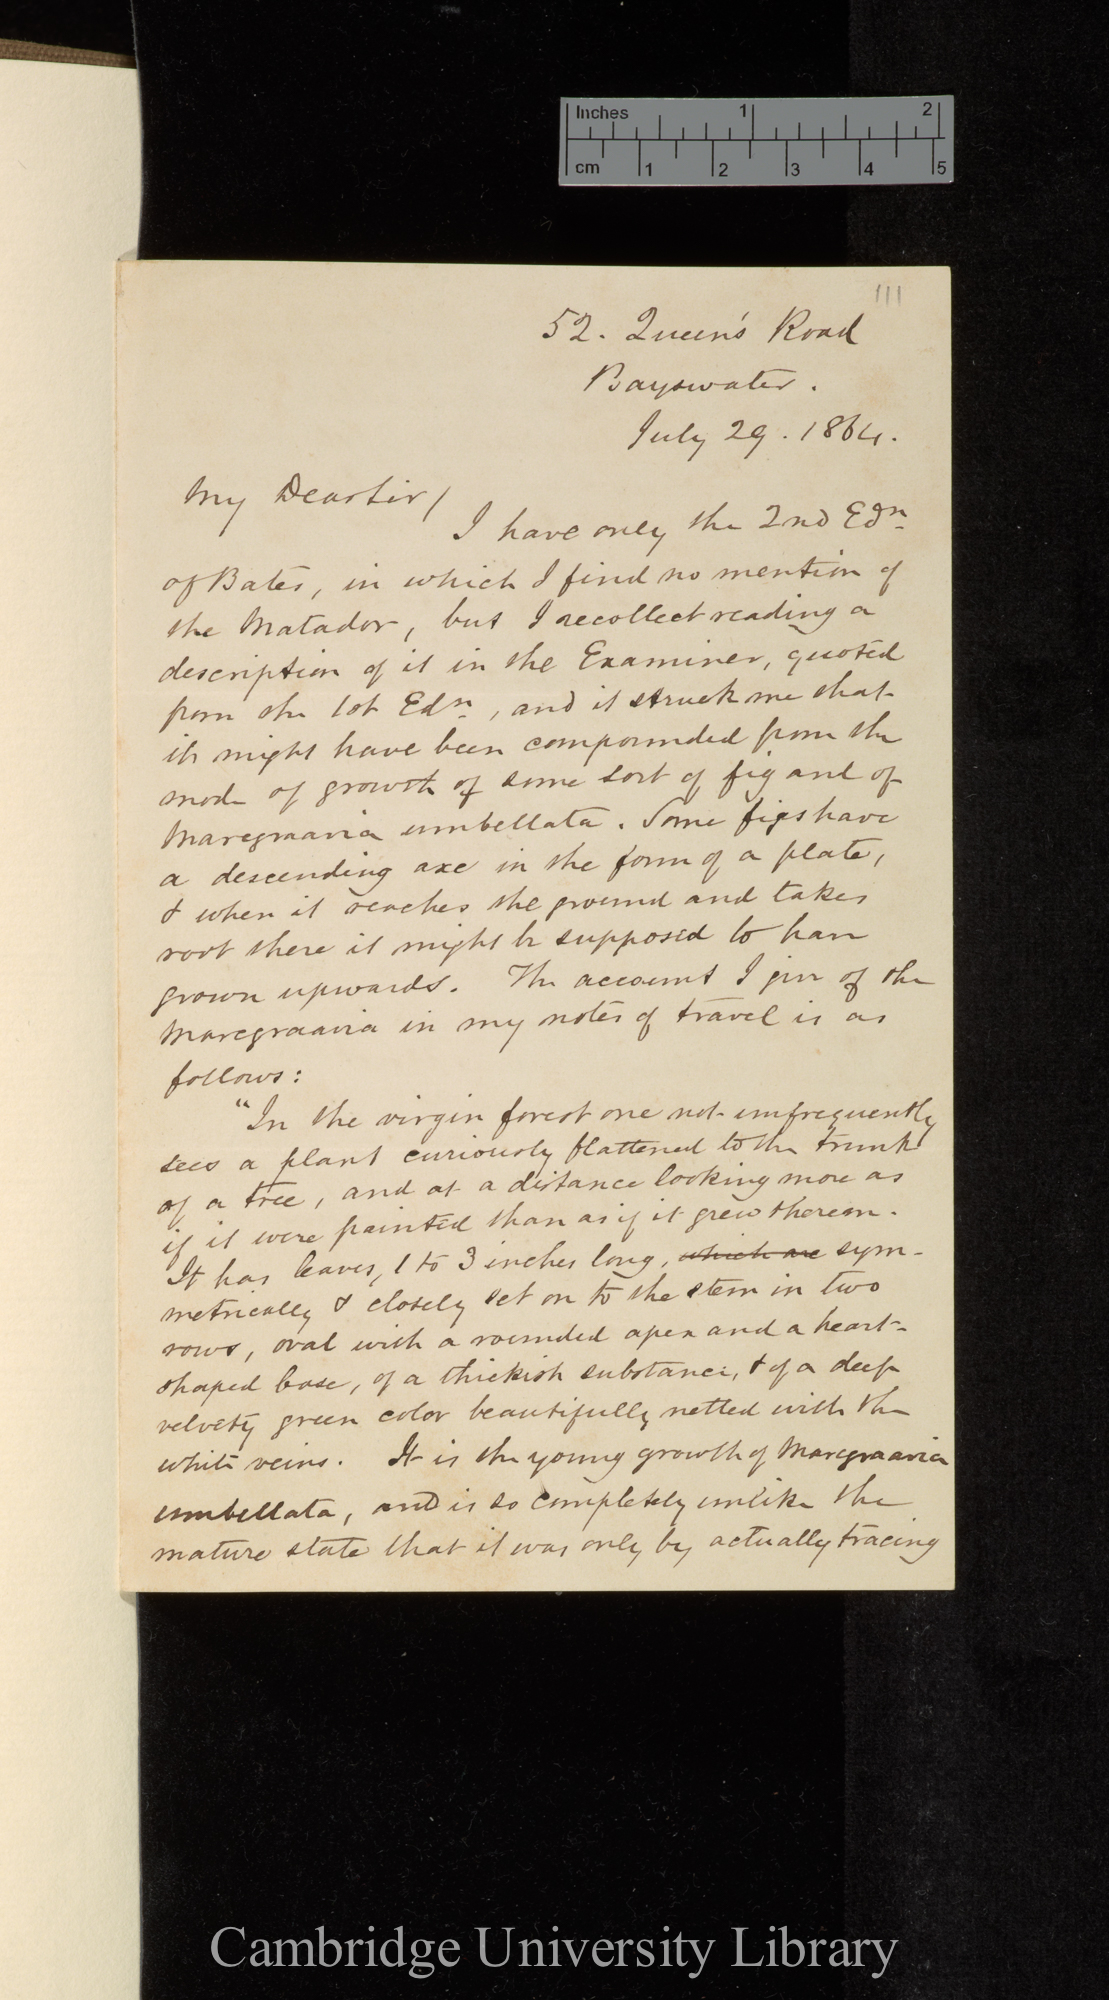 Inches 1 2
cm 1 2 3 4 5
111
52. Queen's Road
Bayswater.
July 29. 1864.
My Dear Sir/
I have only the 2nd Edn.
of Bates, in which I find no mention of
the Matador, but I recollect reading a
description of it in the Examiner, quoted
from the 1st Edn., and it struck me that
it might have been compounded from the
mode of growth of some sort of fig and of
Marcgraavia umbellata. Some figs have
a descending axe in the form of a plate,
& when it reaches the ground and takes
root there it might be supposed to have
grown upwards. The account I give of the
Marcgraavia in my notes of travel is as
follows:
"In the virgin forest one not unfrequently
sees a plant curiously flattened to the trunk
of a tree, and at a distance looking more as
if it were painted than as if it grew thereon.
It has leaves, 1 to 3 inches long, which are sym-
metrically & closely set on to the stem in two
rows, oval with a rounded apex and a heart-
shaped base, of a thickish substance, & of a deep
velvety green color beautifully netted with the
white veins. It is the young growth of Marcgraavia
umbellata, and is so completely unlike the
mature state that it was only by actually tracing
Cambridge University Library